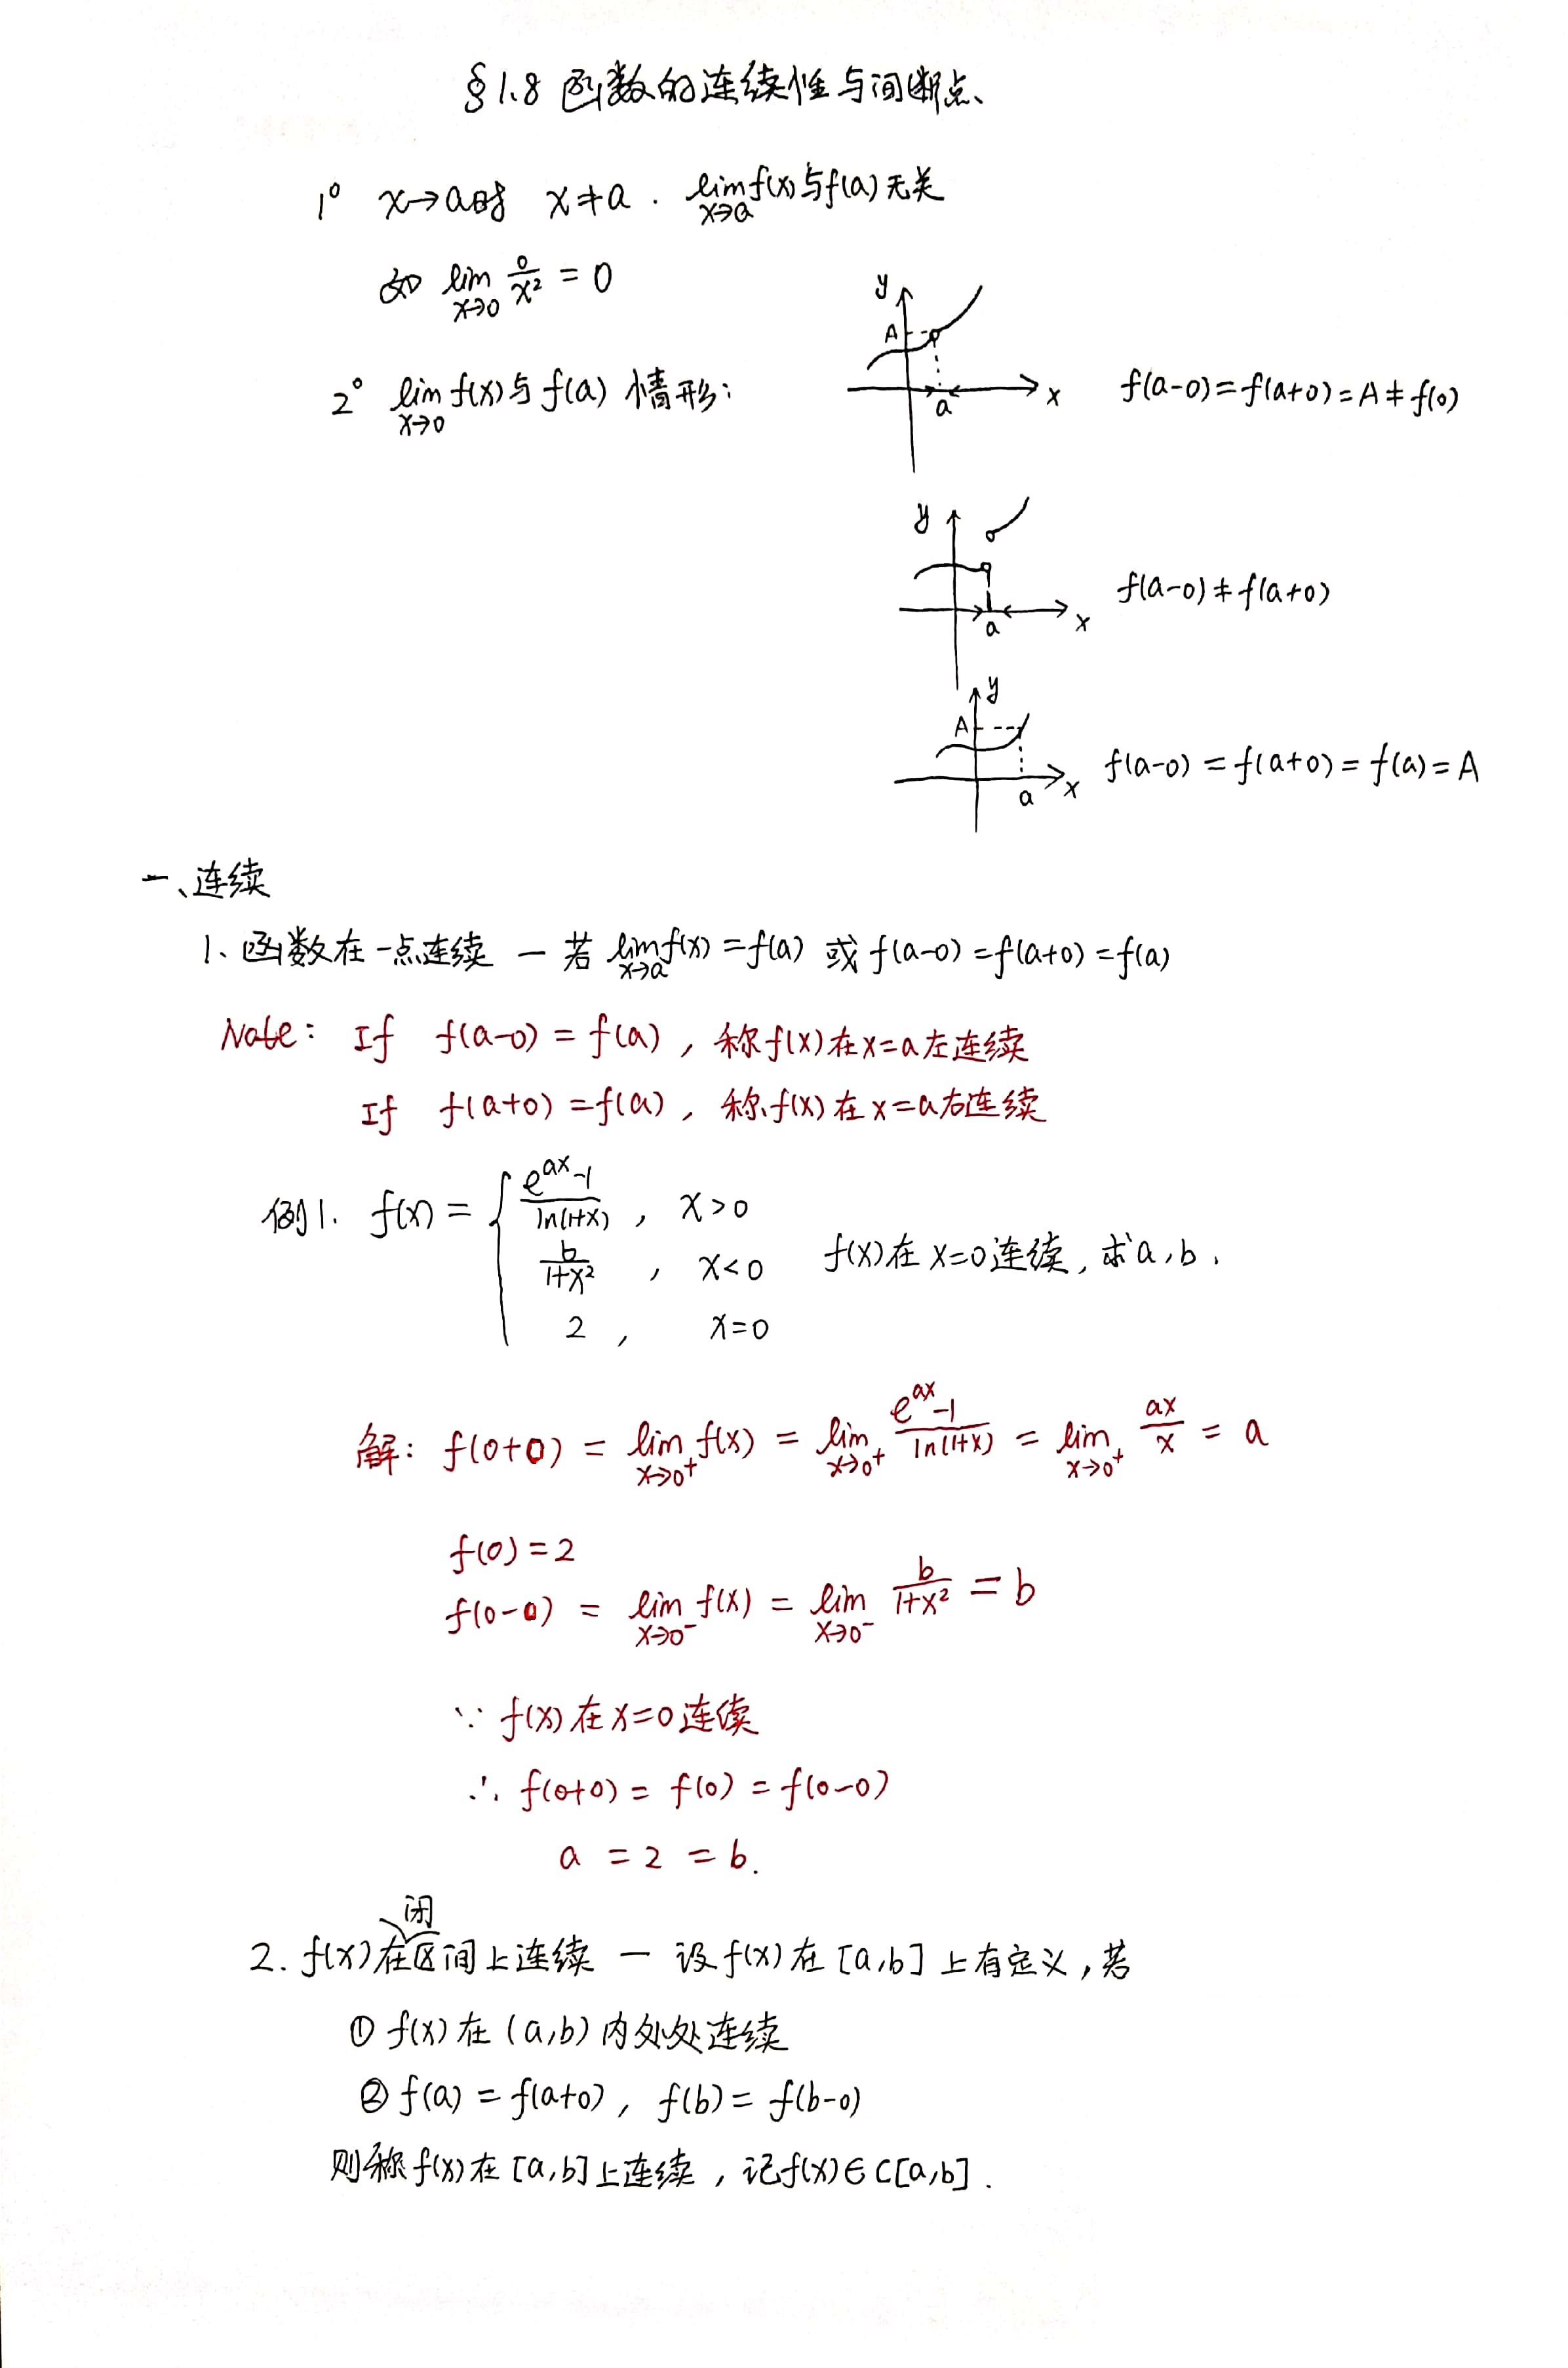 §1.8 函数的连续性与间断点、
1° x→a时 x≠a . lim_{x→a} f(x)与f(a)无关
如 lim_{x→0} 0/x² = 0
2° lim_{x→0} f(x)与 f(a) 情形:
y A a x f(a-0)=f(a+0)=A≠f(0)
y a x f(a-0)≠f(a+0)
y A a x f(a-0)=f(a+0)=f(a)=A
一、连续
1、函数在一点连续 — 若 lim_{x→a} f(x)=f(a) 或 f(a-0)=f(a+0)=f(a)
Note: If f(a-0)=f(a), 称f(x)在x=a左连续
If f(a+0)=f(a), 称f(x)在x=a右连续
例1. f(x) = { (e^{ax}-1)/ln(1+x) , x>0
b/(1+x²) , x<0 f(x)在x=0连续,求a,b.
2 , x=0
解: f(0+0) = lim_{x→0⁺} f(x) = lim_{x→0⁺} (e^{ax}-1)/ln(1+x) = lim_{x→0⁺} ax/x = a
f(0)=2
f(0-0) = lim_{x→0⁻} f(x) = lim_{x→0⁻} b/(1+x²) = b
∵ f(x)在x=0连续
∴ f(0+0) = f(0) = f(0-0)
a = 2 = b.
2. f(x)在闭区间上连续 — 设f(x)在[a,b]上有定义,若
① f(x)在(a,b)内处处连续
② f(a)=f(a+0), f(b)=f(b-0)
则称f(x)在[a,b]上连续,记f(x)∈C[a,b].